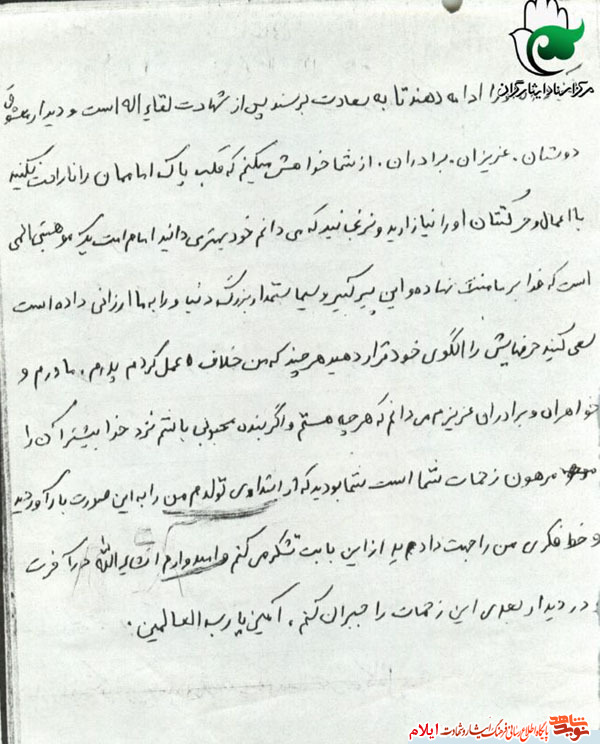 مرکز اسناد ایثارگران
را ادامه دهند تا به سعادت برسند پس از شهادت لقاء اله است و دیدار معشوق
دوستان . عزیزان . برادران . از شما خواهش میکنم که قلب پاک امامان را ناراحت نکنید
با اعمال و حرکتتان او را نیازارید و نرنجانید که می دانم خود بهتر می دانید امام امت یک موهبتی الهی
است که خدا بر ما منت نهاده و این پیر کبیر و سیاستمدار بزرگ دنیا و را به ما ارزانی داده است
سعی کنید حرفهایش را الگوی خود قرار دهید هر چند که من خلاف عمل کردم پدرم . مادرم و
خواهران و برادران عزیزم می دانم که هر چه هستم و اگر بنده محبوبی باشم نزد خدا بیشتر آن را
مرهون زحمات شما است شما بودید که از ابتداوی تولدم من را به این صورت بار آوردید
و خط فکری من را جهت دادید از این بابت تشکر می کنم و امیدوارم انشاءالله در آخرت
در دیدار بعدی این زحمات را جبران کنم ، آمین یا رب العالمین .
نوید شاهد پایگاه اطلاع رسانی فرهنگ ایثار و شهادت ایلام